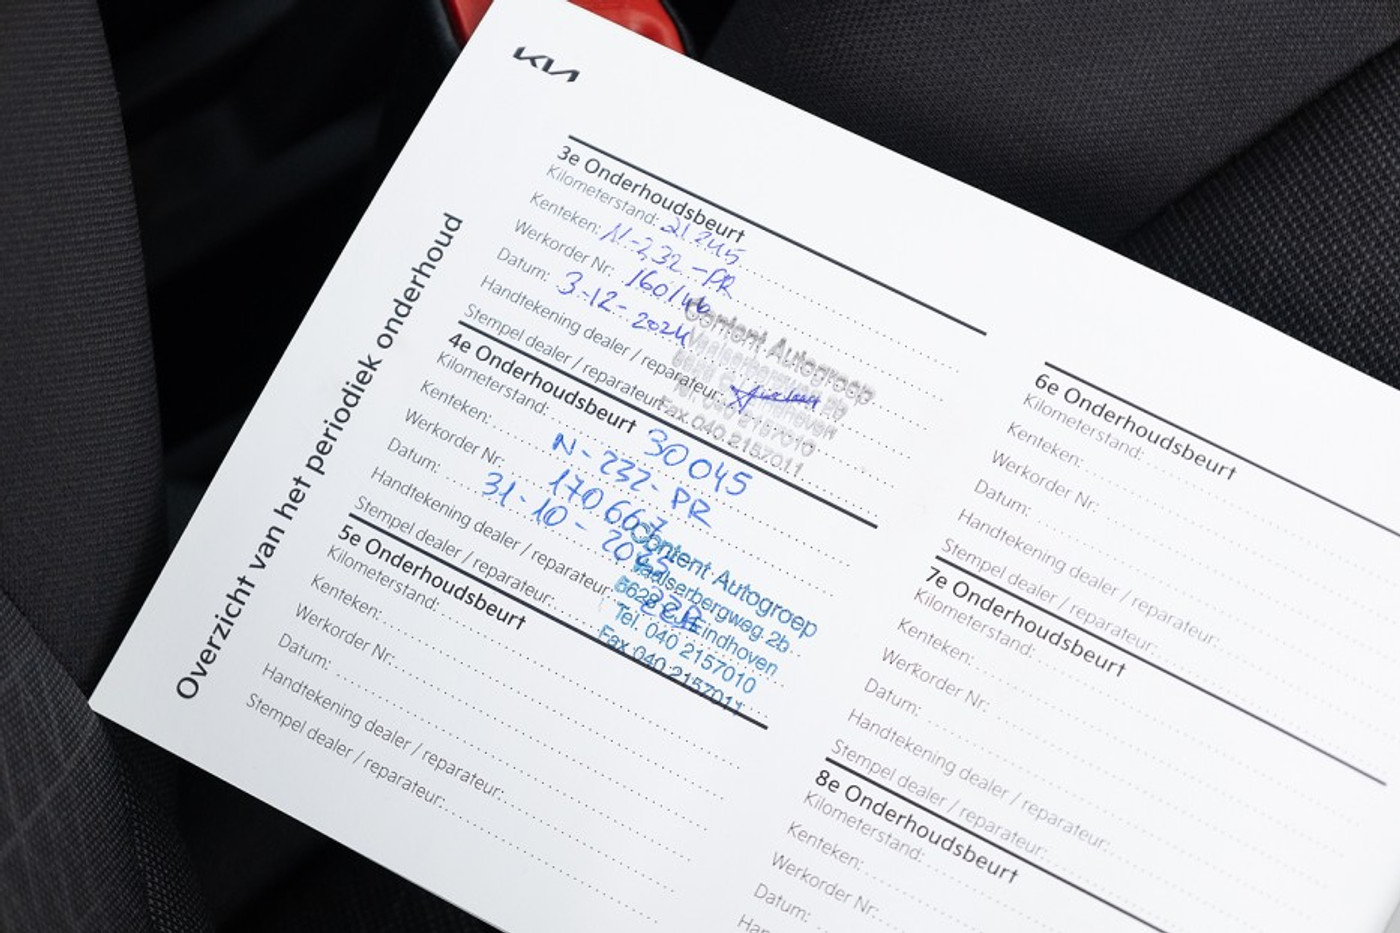 KIA
Overzicht van het periodiek onderhoud
3e Onderhoudsbeurt
Kilometerstand: 21.245
Kenteken: N-232-PR
Werkorder Nr: 160146
Datum: 3-12-2024
Handtekening dealer / reparateur:
Stempel dealer / reparateur:
Content Autogroep
Tel. 040 2157010
Fax 040.2157011
4e Onderhoudsbeurt
Kilometerstand: 30045
Kenteken: N-232-PR
Werkorder Nr: 170667
Datum: 31-10-
Handtekening dealer / reparateur:
Stempel dealer / reparateur:
Content Autogroep
Aalserbergweg 2b
Eindhoven
Tel. 040 2157010
Fax 040 2157011
5e Onderhoudsbeurt
Kilometerstand:
Kenteken:
Werkorder Nr:
Datum:
Handtekening dealer / reparateur:
Stempel dealer / reparateur:
6e Onderhoudsbeurt
Kilometerstand:
Kenteken:
Werkorder Nr:
Datum:
Handtekening dealer / reparateur:
Stempel dealer / reparateur:
7e Onderhoudsbeurt
Kilometerstand:
Kenteken:
Werkorder Nr:
Datum:
Handtekening dealer / reparateur:
Stempel dealer / reparateur:
8e Onderhoudsbeurt
Kilometerstand:
Kenteken:
Werkorder Nr:
Datum: